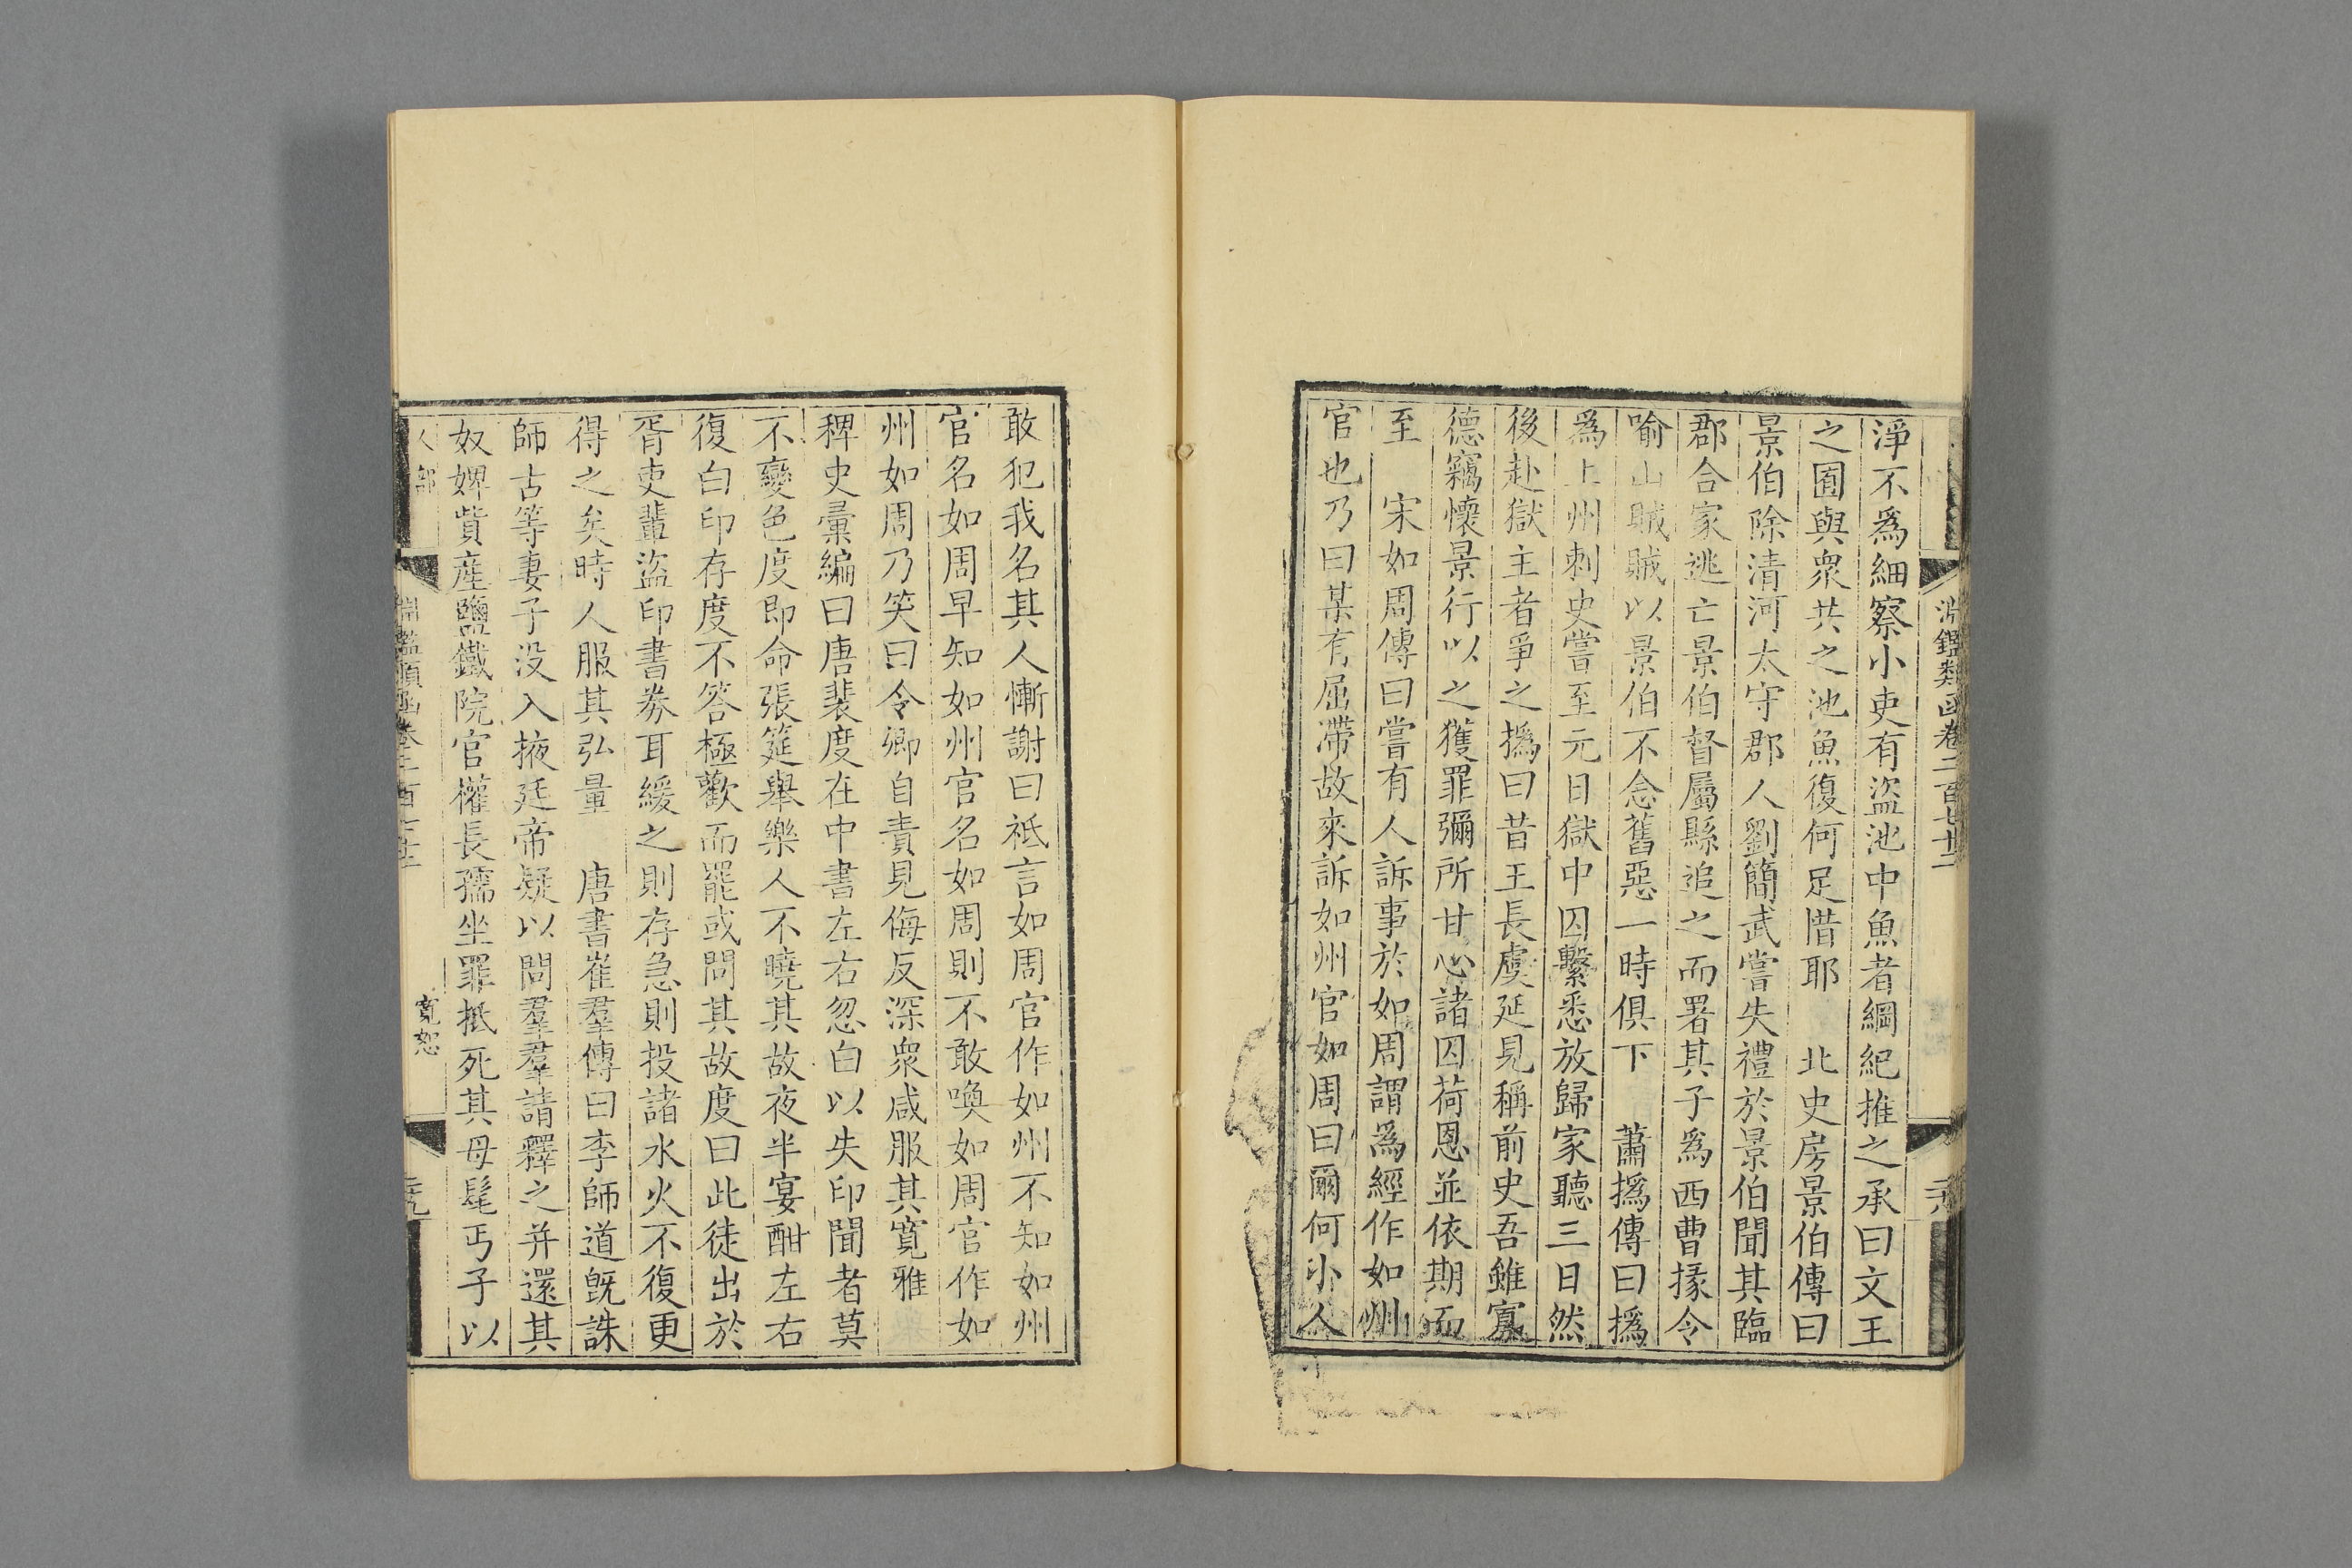 淵鑑類函卷二百七十二
淨不爲細察小吏有盜池中魚者綱紀推之承曰文王
之囿與衆共之池魚復何足惜耶 北史房景伯傳曰
景伯除清河太守郡人劉簡武嘗失禮於景伯聞其臨
郡合家逃亡景伯督屬縣追之而署其子爲西曹掾令
喻山賊賊以景伯不念舊惡一時俱下 蕭撝傳曰撝
爲上州刺史嘗至元日獄中囚繫悉放歸家聽三日然
後赴獄主者爭之撝曰昔王長虞延見稱前史吾雖寡
德竊懷景行以之獲罪彌所甘心諸囚荷恩並依期而
至 宋如周傳曰嘗有人訴事於如周謂爲經作如州
官也乃曰某有屈滯故來訴如州官如周曰爾何小人
敢犯我名其人慚謝曰祗言如周官作如州不知如州
官名如周早知如州官名如周則不敢喚如周官作如
州如周乃笑曰令卿自責見侮反深衆咸服其寬雅
稗史彙編曰唐裴度在中書左右忽白以失印聞者莫
不變色度即命張筵舉樂人不曉其故夜半宴酣左右
復白印存度不答極歡而罷或問其故度曰此徒出於
胥吏輩盜印書券耳緩之則存急則投諸水火不復更
得之矣時人服其弘量 唐書崔羣傳曰李師道旣誅
師古等妻子没入掖廷帝疑以問羣羣請釋之并還其
奴婢貲産鹽鐵院官權長孺坐罪抵死其母耄丐子以
人部
淵鑑類函卷二百七十二
寬恕